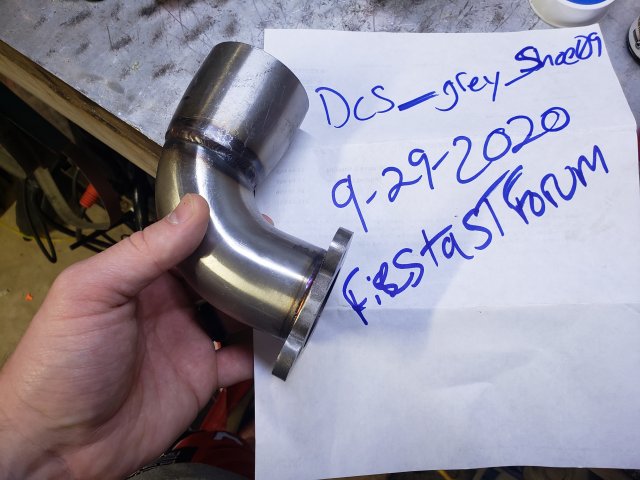 Dcs_grey_Shoe109
9-29-2020
FiestaSTForum